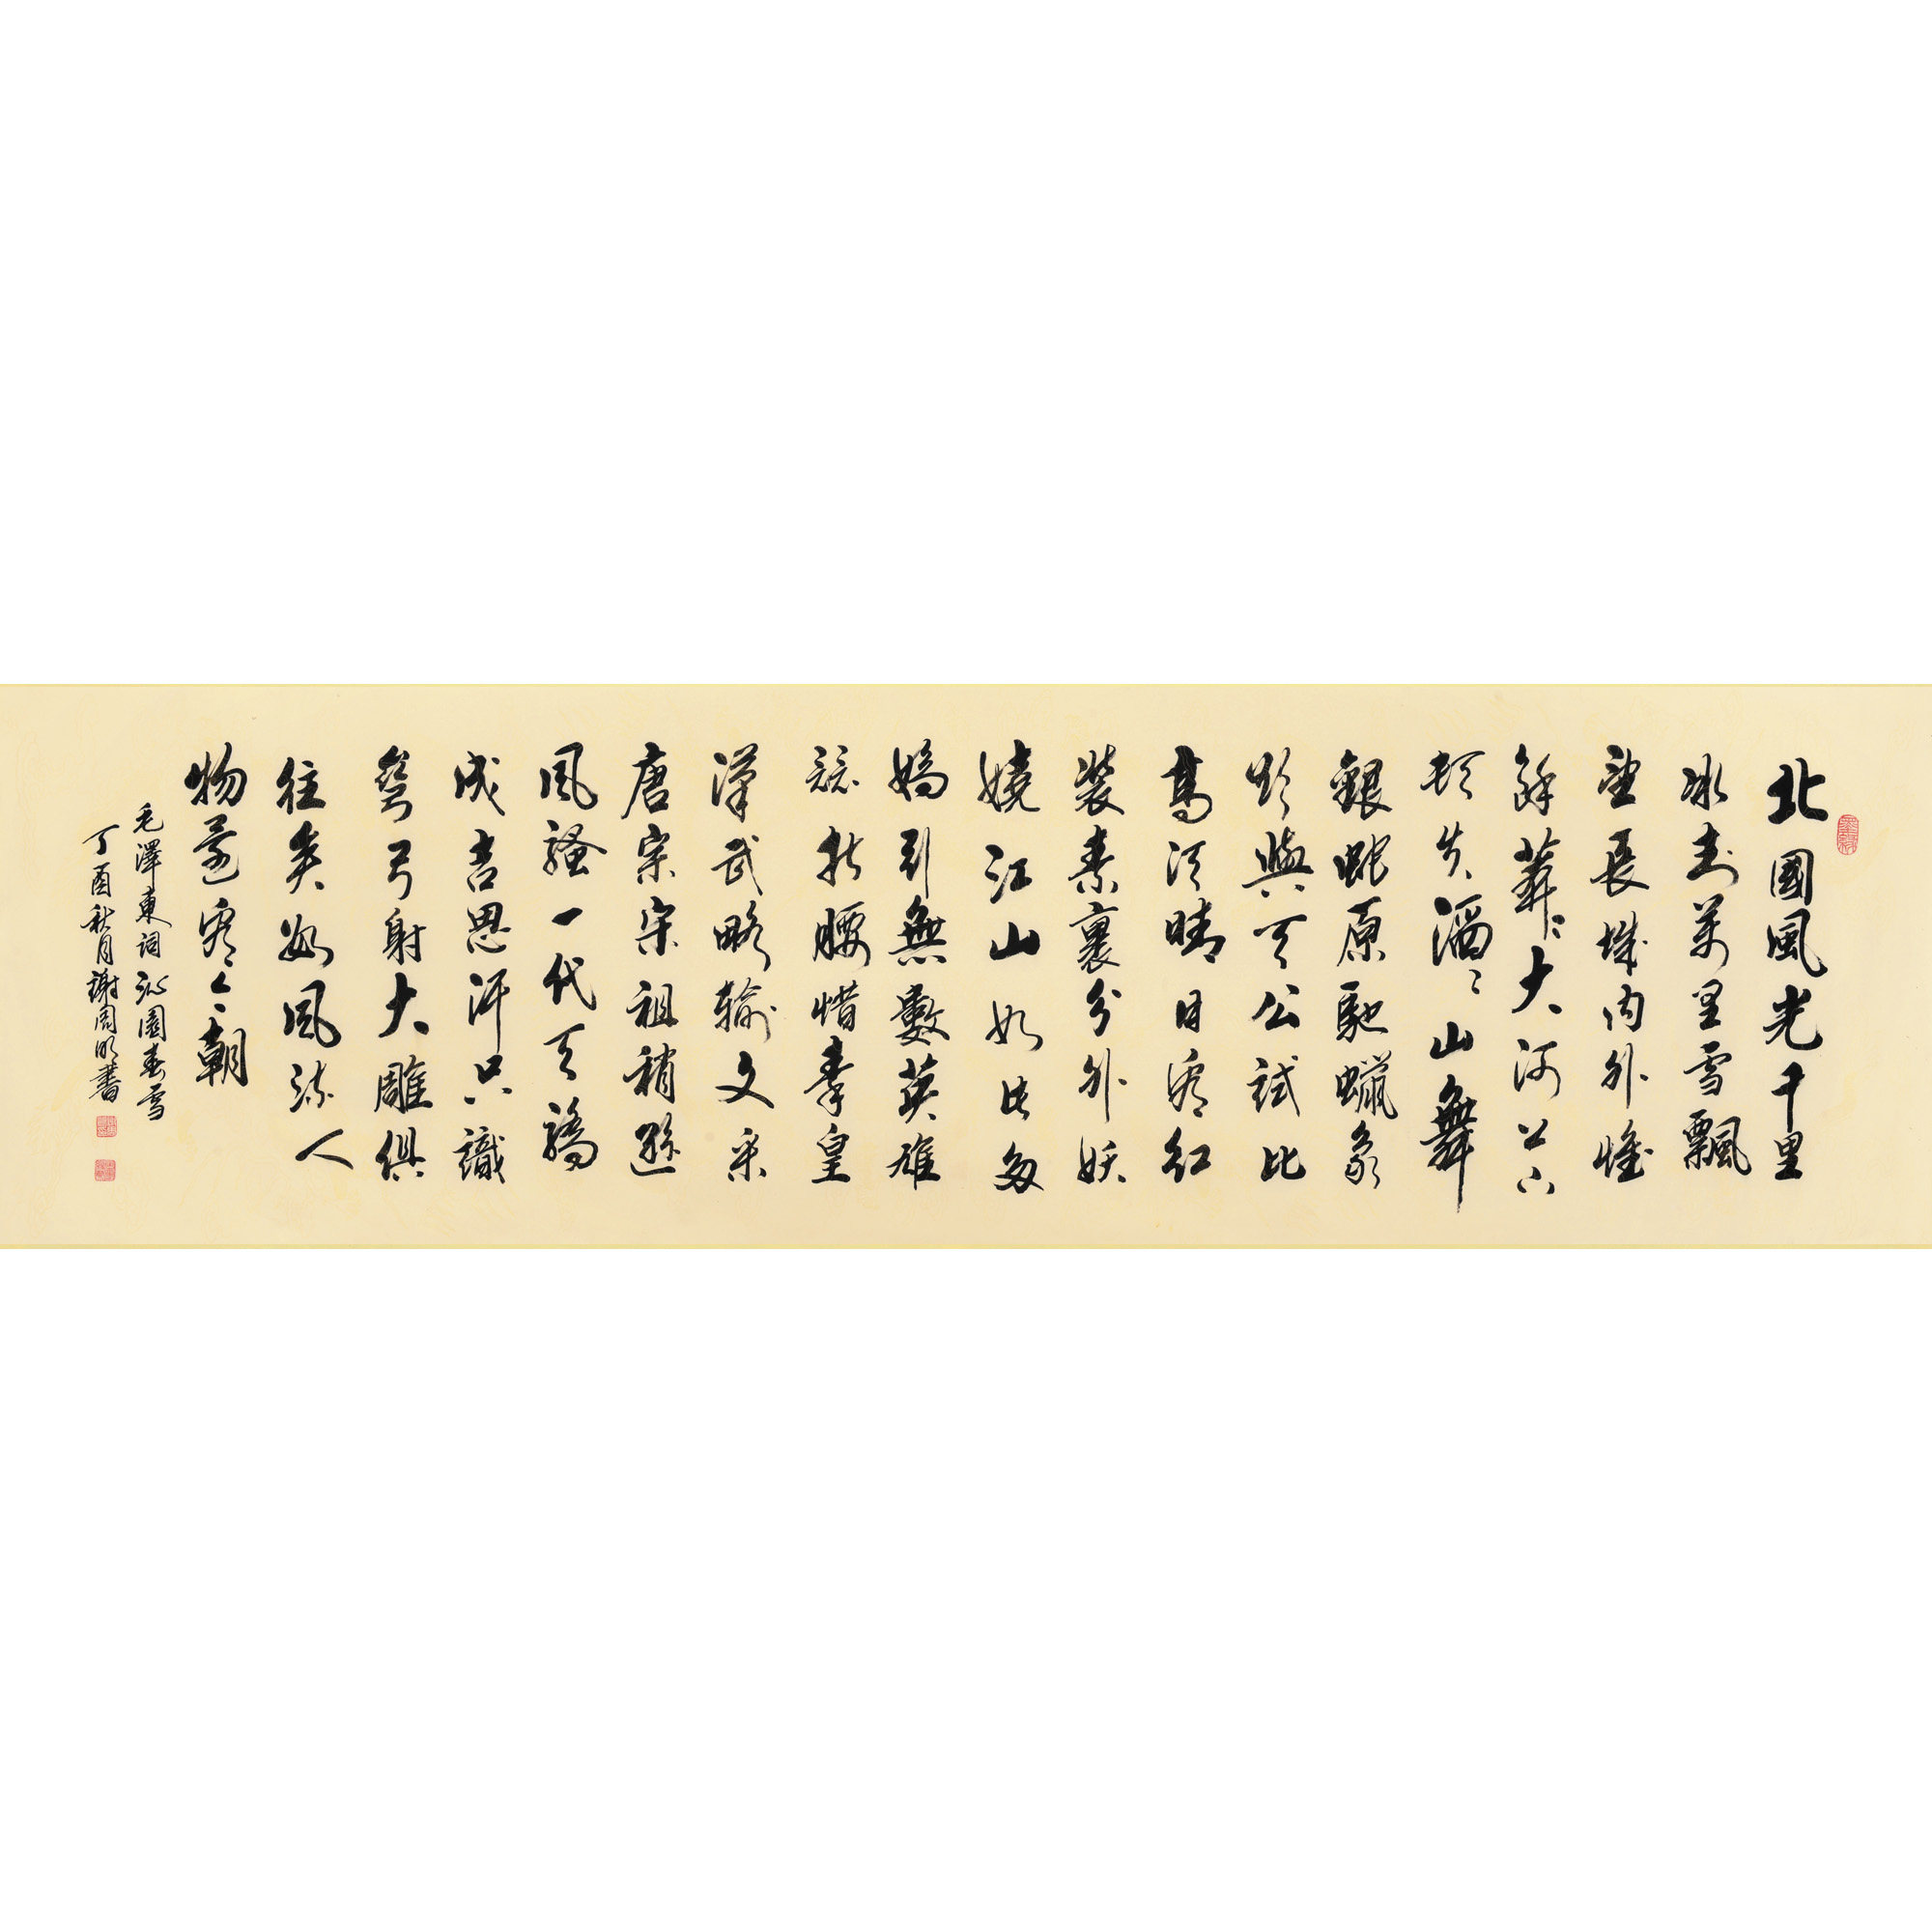 北國風光千里
冰封萬里雪飄
望長城內外惟
餘莽〻大河上下
頓失滔〻山舞
銀蛇原馳蠟象
欲與天公試比
高須晴日看紅
裝素裹分外妖
嬈江山如此多
嬌引無數英雄
競折腰惜秦皇
漢武略輸文采
唐宗宋祖稍遜
風騷一代天驕
成吉思汗只識
彎弓射大雕俱
往矣數風流人
物還看今朝
毛澤東詞沁園春雪
丁酉秋月謝周明書